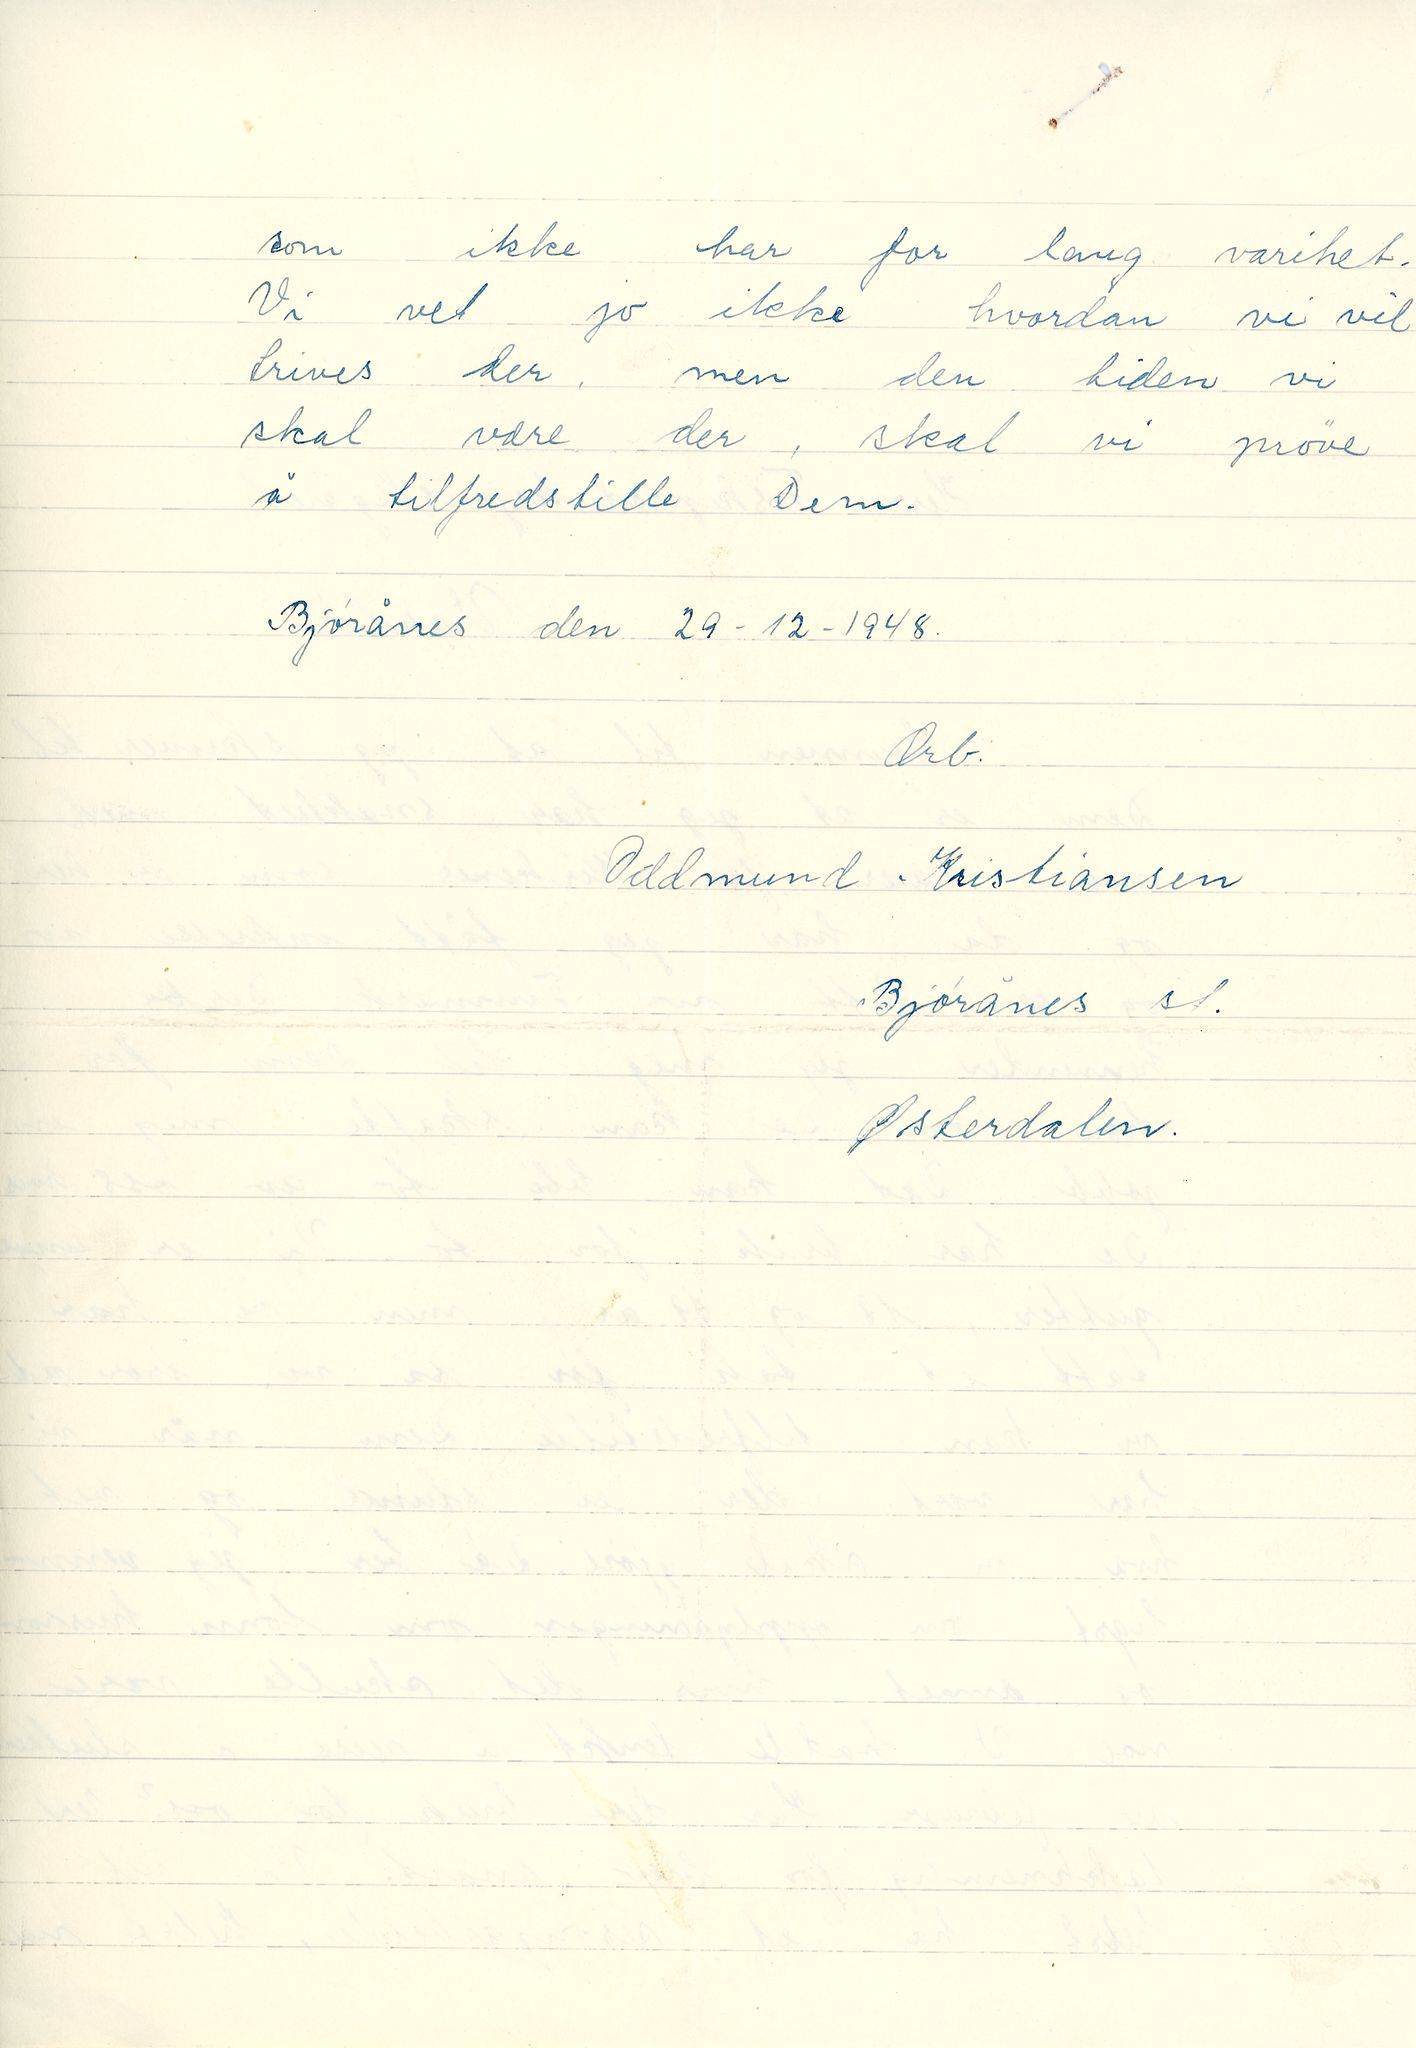 som ikke har for lang varihet.
Vi vet jo ikke hvordan vi vil
trives der, men den tiden vi
skal være der, skal vi pröve
å tilfredstille Dem.
Bjørånes den 29-12-1948.
Ørb.
Oddmund Kristiansen
Bjørånes st.
Østerdalen.